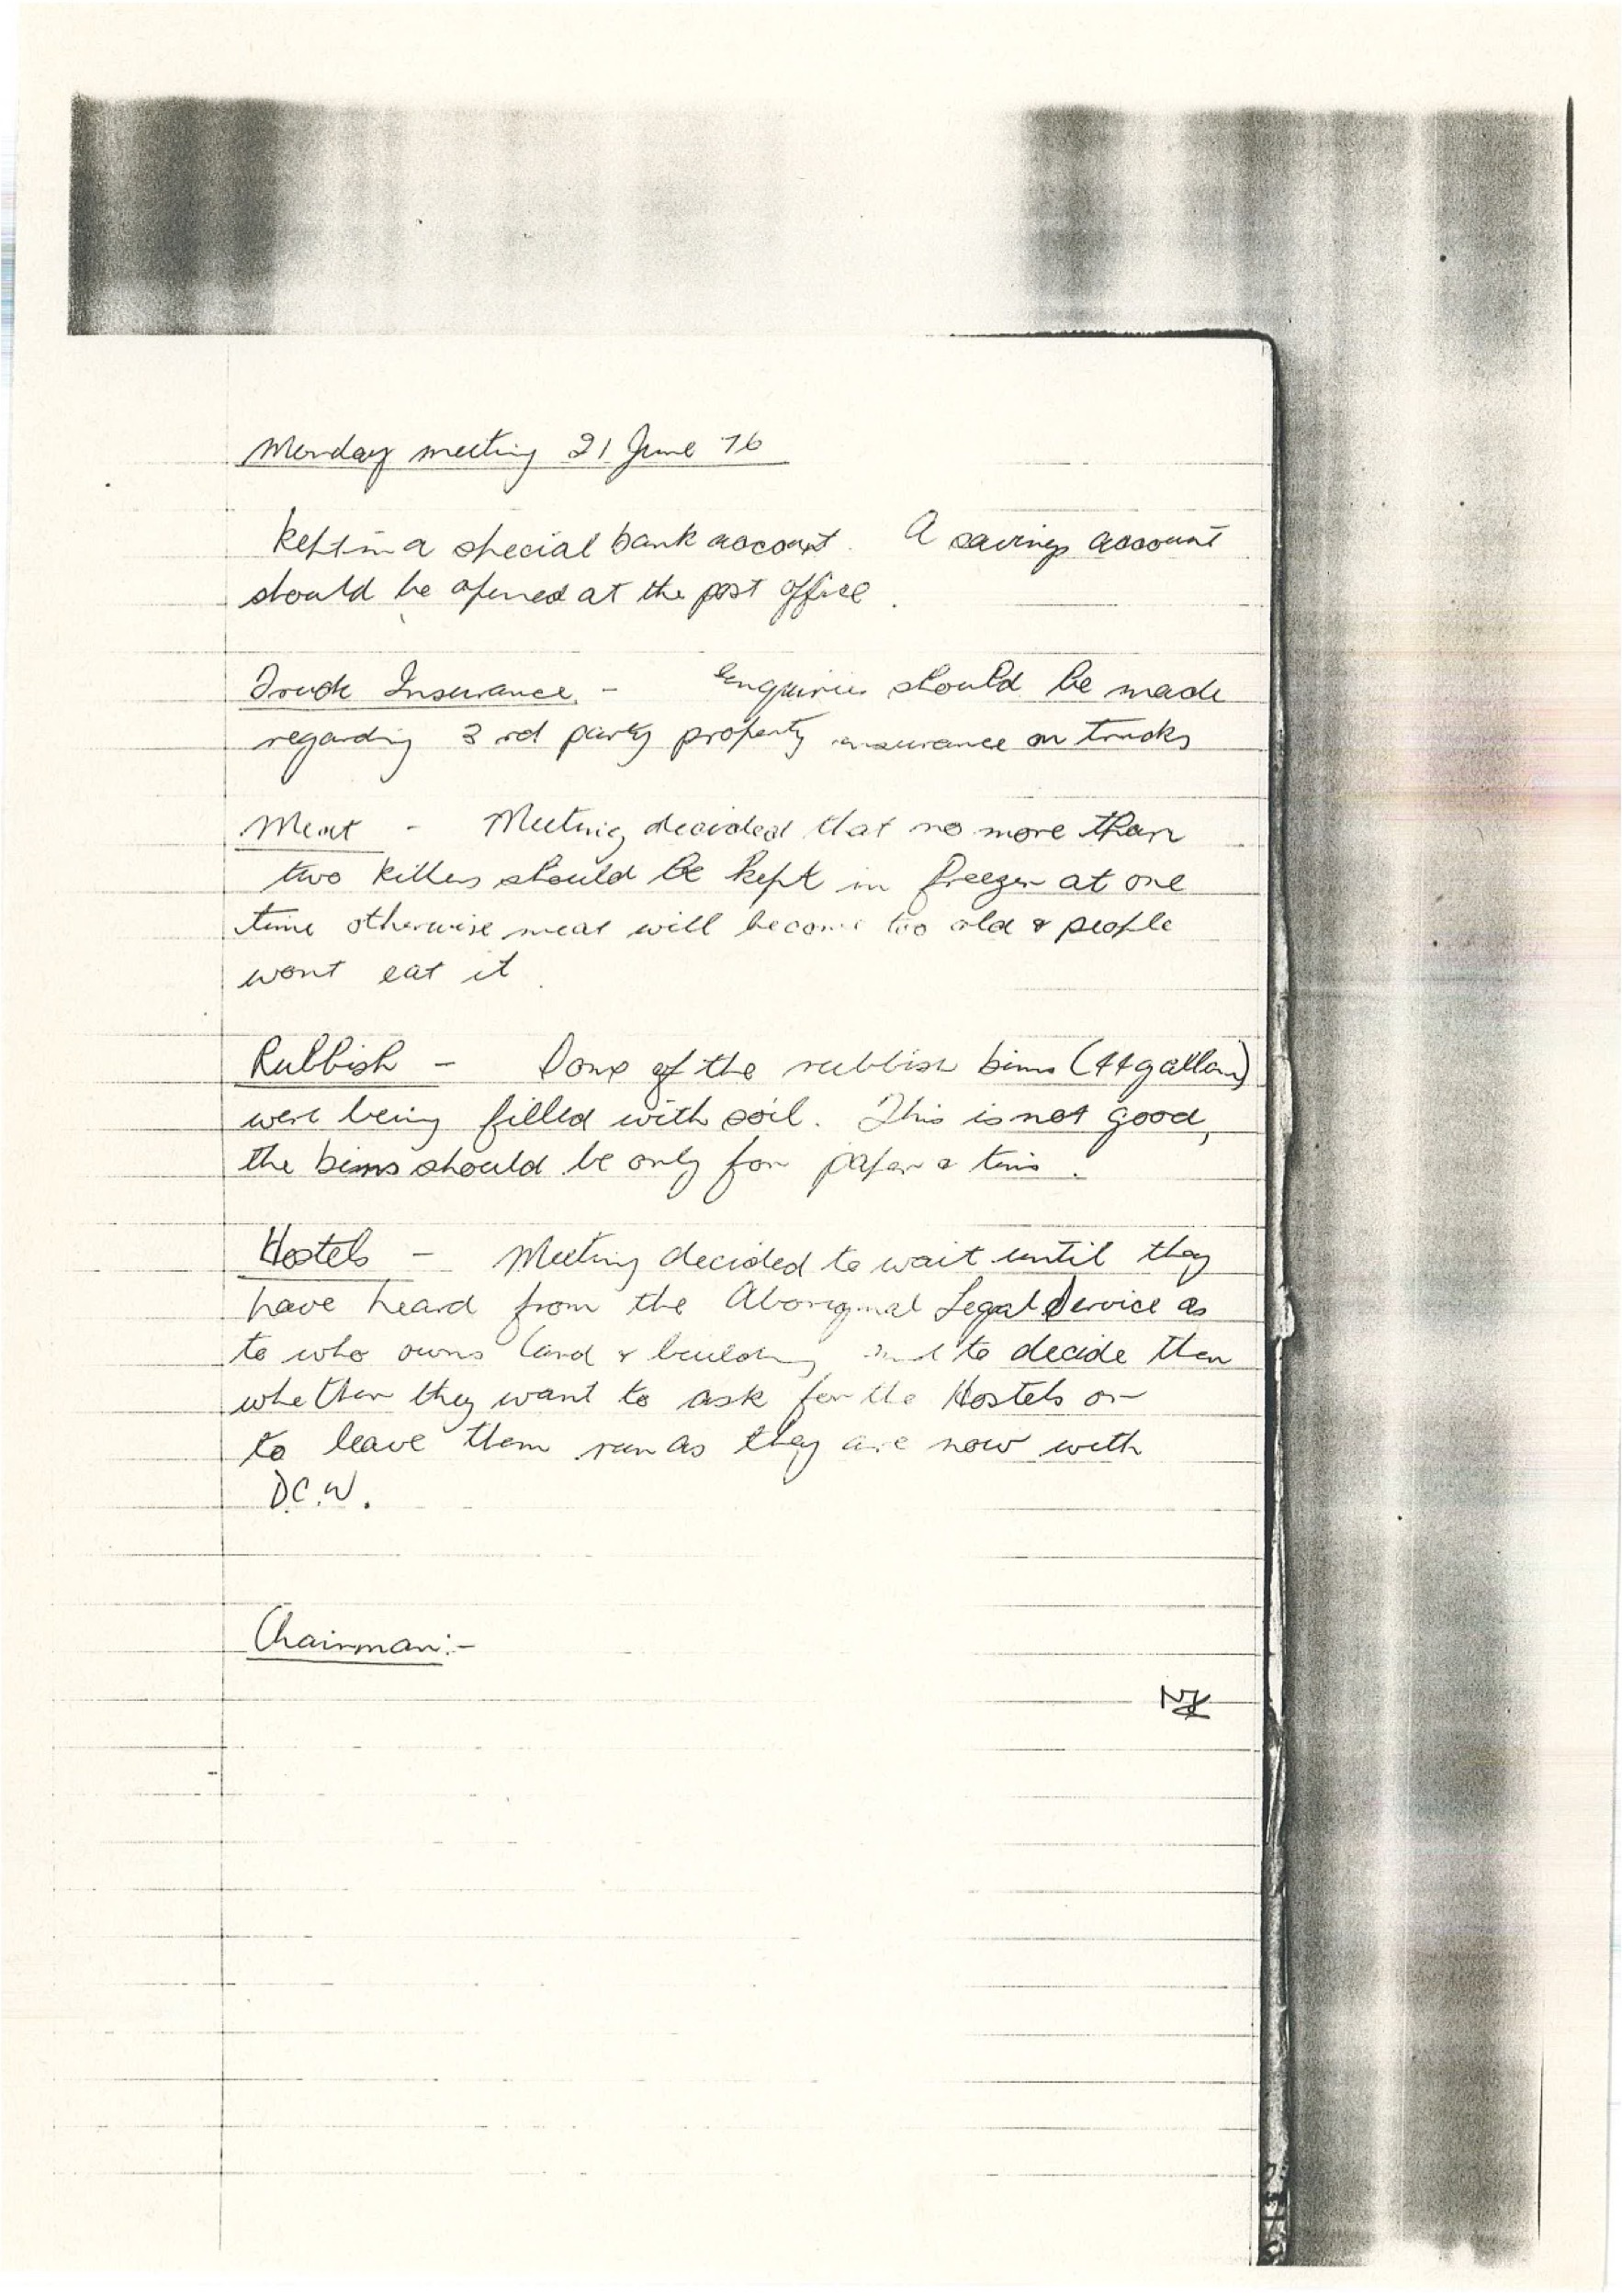 Monday meeting 21 June 76
kept in a special bank account. A savings account
should be opened at the post office.
Truck Insurance. - Enquiries should be made
regarding 3rd party property insurance on trucks
Meat - Meeting decided that no more than
two killers should be kept in freezer at one
time otherwise meat will become too old & people
wont eat it.
Rubbish - Some of the rubbish bins (44 gallon)
were being filled with soil. This is not good,
the bins should be only for paper & tins.
Hostels - Meeting decided to wait until they
have heard from the Aboriginal Legal Service as
to who owns land & building and to decide then
whether they want to ask for the Hostels or
to leave them run as they are now with
D.C.W.
Chairman:-